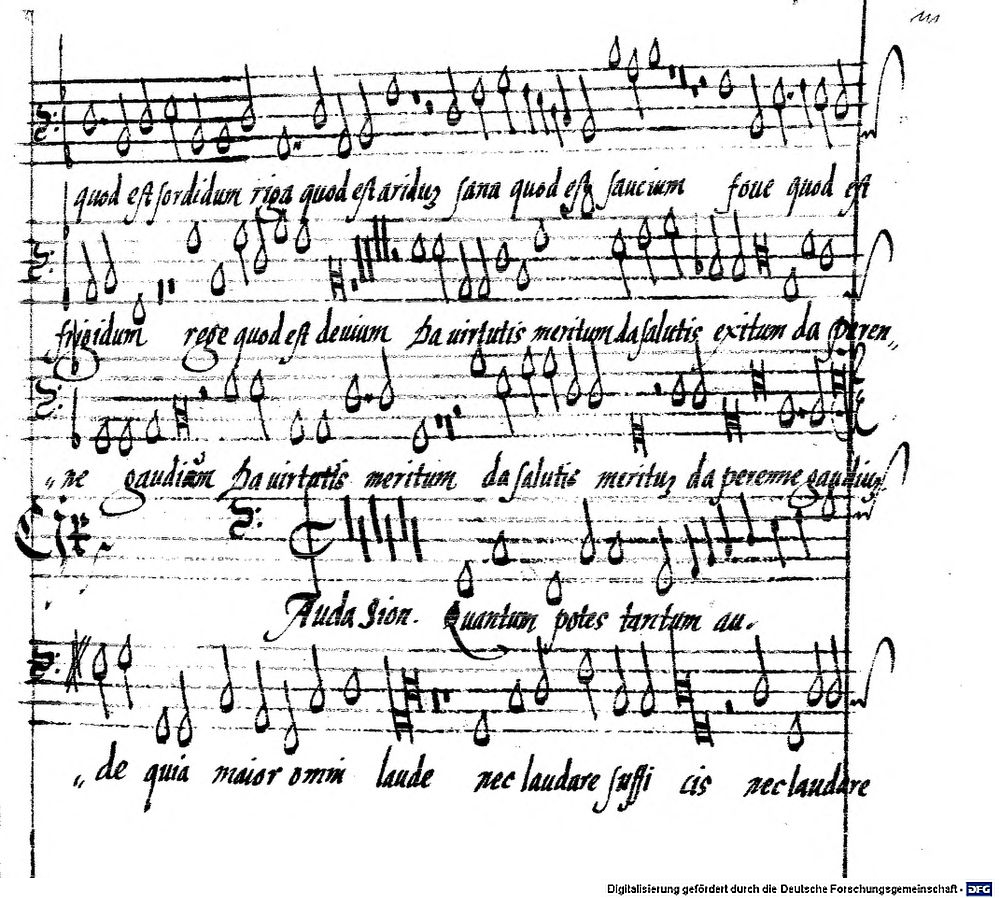 quod est sordidum riga quod est ariduz sana quod est saucium foue quod est
frigidum rege quod est deuium Da uirtutis meritum da salutis exitum da peren„
„ne gaudium Da uirtutis meritum da salutis merituz da perenne gaudiuz
Lauda Sion. Quantum potes tantum au„
„de quia maior omni laude nec laudare suffi cis nec laudare
Digitalisierung gefördert durch die Deutsche Forschungsgemeinschaft - DFG